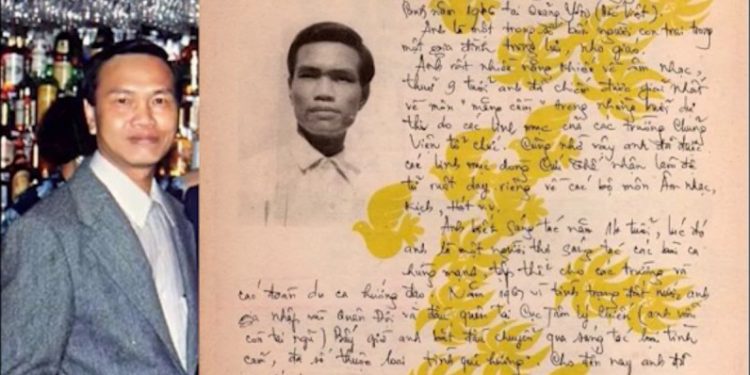 năm 1946 tại Quảng Yên (Bắc Việt).
Anh là một trong số bốn người con trai trong
một gia đình trung lưu nho giáo.
Anh rất nhiều năng khiếu về âm nhạc,
thuở 9 tuổi anh đã chiếm được giải nhất
về môn "măng cầm" trong những buổi dự
thi do các linh mục cho các trường Chủng
Viện tổ chức. Cũng nhờ vậy anh đã được
các linh mục dòng Cứu Thế nhận làm đệ
tử ruột dạy riêng về các bộ môn Âm nhạc,
Kịch, Hát v.v.
Anh biết sáng tác năm 16 tuổi, lúc đó
anh là một người thợ sáng tác các bài ca
hùng mạnh tập thể cho các trường và
các đoàn du ca hướng đạo. Năm 1967 vì tình trạng đất nước, anh
gia nhập vào Quân Đội và đầu quân tại Cục Tâm lý chiến (anh vẫn
còn tại ngũ) Bây giờ anh bắt đầu chuyển qua sáng tác loại tình
cảm, đa số thuộc loại tình quê hương. Cho đến nay anh đã